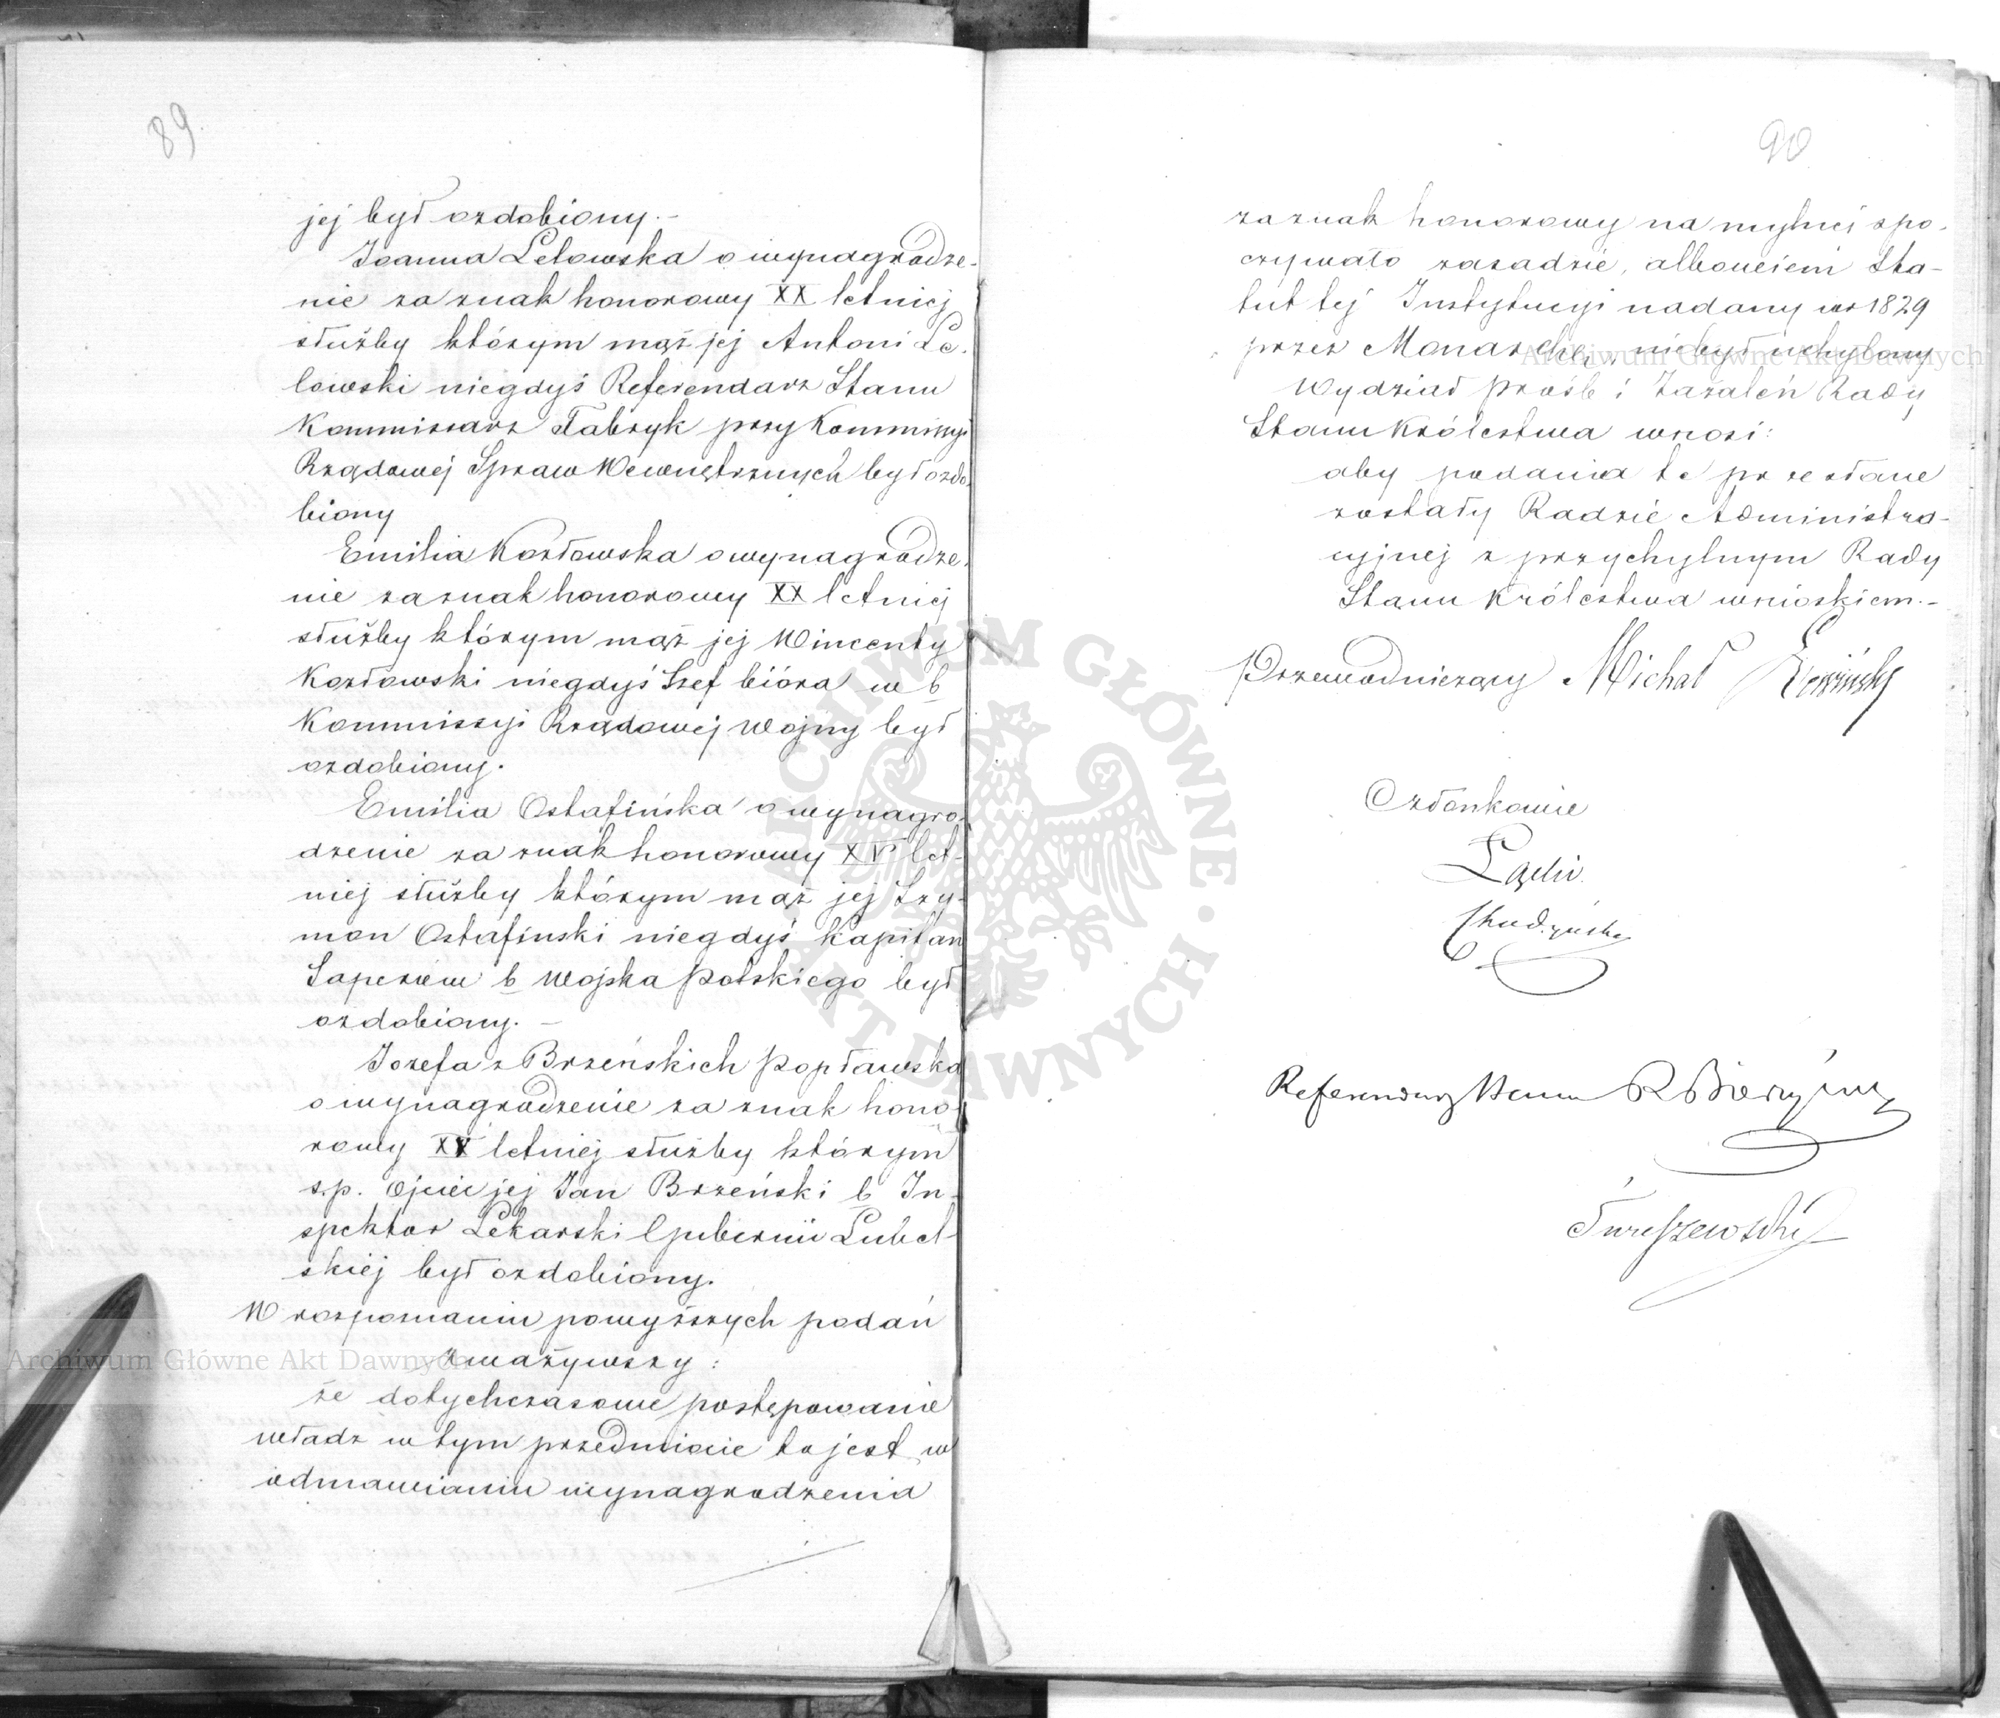 89
jej był ozdobiony.-
Joanna Lelowska o wynagrodze-
nie za znak honorowy XX letniej
służby którym mąż jej Antoni Le-
lowski niegdyś Referendarz Stanu
Kommissarz Fabryk przy Kommissyi
Rządowej Spraw Wewnętrznych był ozdo-
biony
Emilia Kozłowska o wynagrodze-
nie za znak honorowy XX letniej
służby którym mąż jej Wincenty
Kozłowski niegdyś Szef bióra w b
Kommissyi Rządowej Wojny był
ozdobiony.
Emilia Ostafińska o wynagro-
dzenie za znak honorowy XV let-
niej służby którym mąż jej Szy-
mon Ostafinski niegdyś Kapitan
Saperów b Wojska Polskiego był
ozdobiony.-
Jozefa z Brzeńskich Popławska
o wynagrodzenie za znak hono-
rowy XX letniej służby którym
s.p. Ojciec jej Jan Brzeński b In-
spektor Lekarski Gubernii Lubel-
skiej był ozdobiony.
W rozpoznaniu powyższych podań
zważywszy:
że dotychczasowe postępowanie
władz w tym przedmiocie to jest w
odmawianiu wynagrodzenia
90
za znak honorowy na mylnej spo-
czywało zasadzie, albowiem Sta-
tut tej Instytucyi nadany w r 1829
przez Monarchę, niebył uchylony
Wydział Próśb i Zażaleń Rady
Stanu Królestwa wnosi:
aby podania te przesłane
zostały Radzie Administra-
cyjnej z przychylnym Rady
Stanu Królestwa wnioskiem.-
Przewodniczący Michał
Członkowie
Referendarz Stanu
Archiwum Główne Akt Dawnych
Archiwum Główne Akt Dawnych
ARCHIWUM GŁÓWNE AKT DAWNYCH